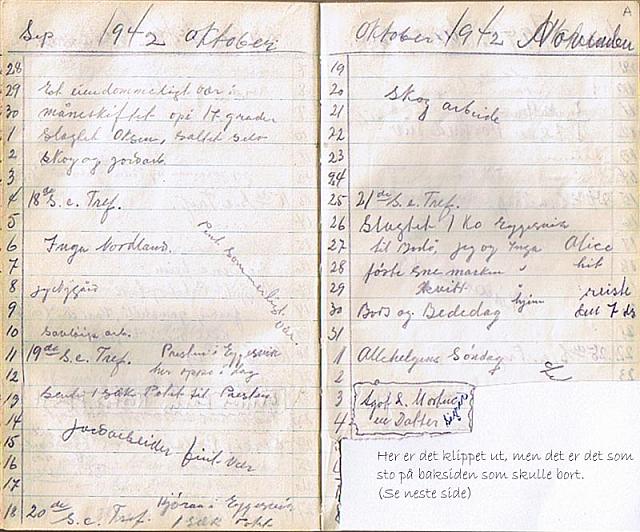 Sep 1942 Oktober
28
29 Et eiendommeligt vær i
30 måneskiftet opi 17 grader
1 Slagtet Oksen, saltet
2 Skog og jordarb.
3
4 18de S. e. Tref.
5
6 Inga Nordland.
7
Pent sommerligt vær.
8
9
10 arb.
11 19de S. e. Tref. Presten i Eggesvik
12 her oppe i dag
13 Sendt 1 sæk Potet til Presten
14
15 Jordarbeider fint vær
16
17
18 20de S. e. Tref. i Eggesvik
1 sæk
Oktober 1942 November
A
19
20 Skog arbeide
21
22
23
24
25 21de S. e. Tref.
26 Slagtet 1 Ko Eggesvik
27 til Bodö, jeg og Inga Alice
28 förte Gnemarken " hit
29 Hvitt " hjem reiste
30 Bods og Bededag den 7 ds
31
1 Allehelgens Söndag
2
3
4 en Datter
Her er det klippet ut, men det er det som
sto på baksiden som skulle bort.
(Se neste side)